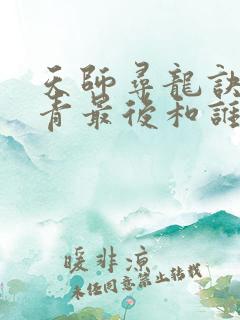 天師尋龍訣
青最後和誰
暖非涼
未经同意禁止转载